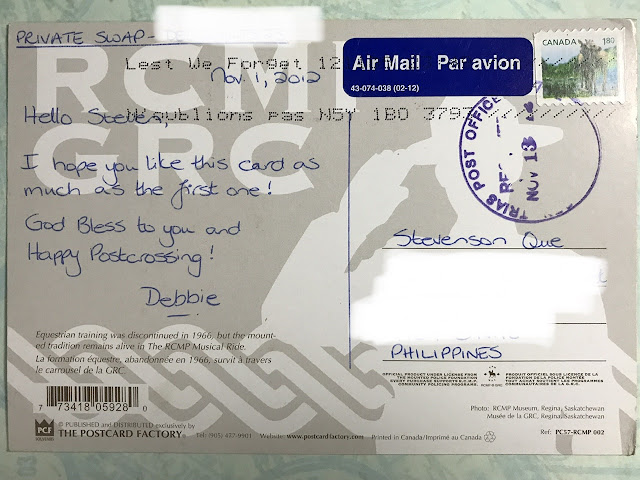 PRIVATE SWAP-
RCMP
GRC
Lest We Forget 12
Nov. 1, 2012
Air Mail Par avion
43-074-038 (02-12)
CANADA 180
N'oublions pas N5Y 1B0 3797
TRIAS POST OFFICE
NOV 13
Hello Steven,
I hope you like this card as
much as the first one!
God Bless to you and
Happy Postcrossing!
Debbie
Stevenson Que
PHILIPPINES
Equestrian training was discontinued in 1966, but the mount-
ed tradition remains alive in The RCMP Musical Ride.
La formation équestre, abandonnée en 1966, survit à travers
le carrousel de la GRC
7 73418 05928 0
PCF
© PUBLISHED and DISTRIBUTED exclusively by
THE POSTCARD FACTORY
Tel: (905) 477-9901 Website: www.postcardfactory.com Printed in Canada/Imprimé au Canada
OFFICIAL PRODUCT UNDER LICENSE FROM
THE MOUNTED POLICE FOUNDATION
EVERY PURCHASE SUPPORTS R.C.M.P.
COMMUNITY POLICING PROGRAMS.
PRODUIT OFFICIEL SOUS LICENCE DE LA
FONDATION DE LA POLICE MONTÉE
TOUT ACHAT SOUTIENT LES PROGRAMMES
COMMUNAUTAIRES DE LA G.R.C.
Photo: RCMP Museum, Regina, Saskatchewan
Musée de la GRC, Regina, Saskatchewan
Ref: PC57-RCMP 002